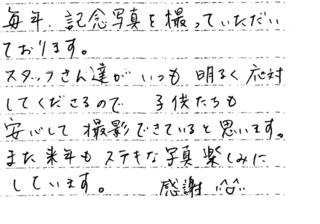 毎年、記念写真を撮っていただい
ております。
スタッフさん達がいつも明るく応対
してくださるので 子供たちも
安心して撮影できていると思います。
また来年もステキな写真楽しみに
しています。 感謝